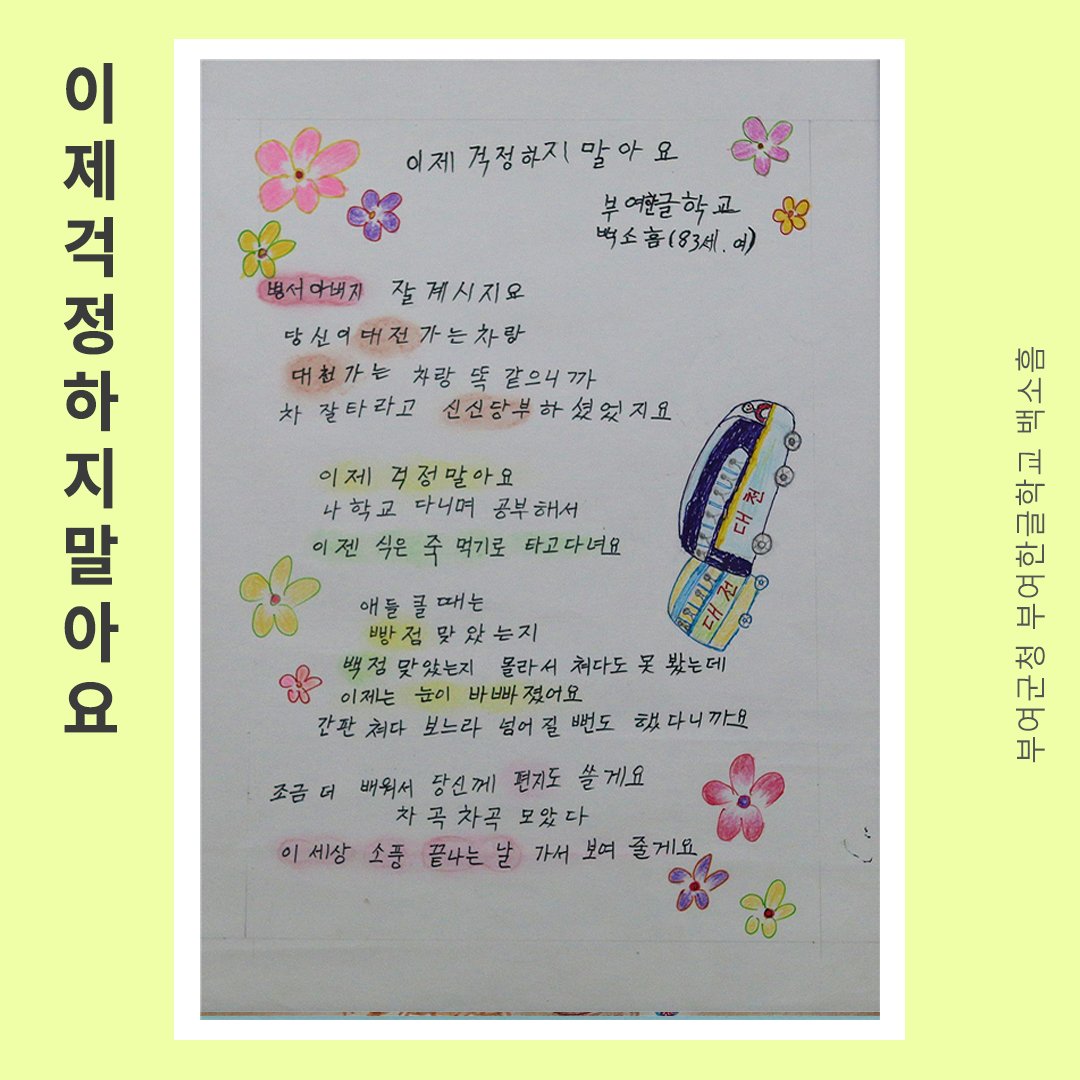 이제걱정하지말아요
이제 걱정하지 말아요
부여한글학교
백소흠(83세.여)
병서아버지 잘 계시지요
당신이 대전 가는 차랑
대천 가는 차랑 똑 같으니까
차 잘타라고 신신당부하셨었지요
이제 걱정말아요
나 학교 다니며 공부해서
이젠 식은 죽 먹기로 타고다녀요
애들 클 때는
빵점 맞았는지
백점 맞았는지 몰라서 쳐다도 못 봤는데
이제는 눈이 바빠졌어요
간판 쳐다 보느라 넘어질 뻔도 했다니까요
조금 더 배워서 당신께 편지도 쓸게요
차곡차곡 모았다
이 세상 소풍 끝나는 날 가서 보여 줄게요
대천
대전
부여군청 부여한글학교 백소흠